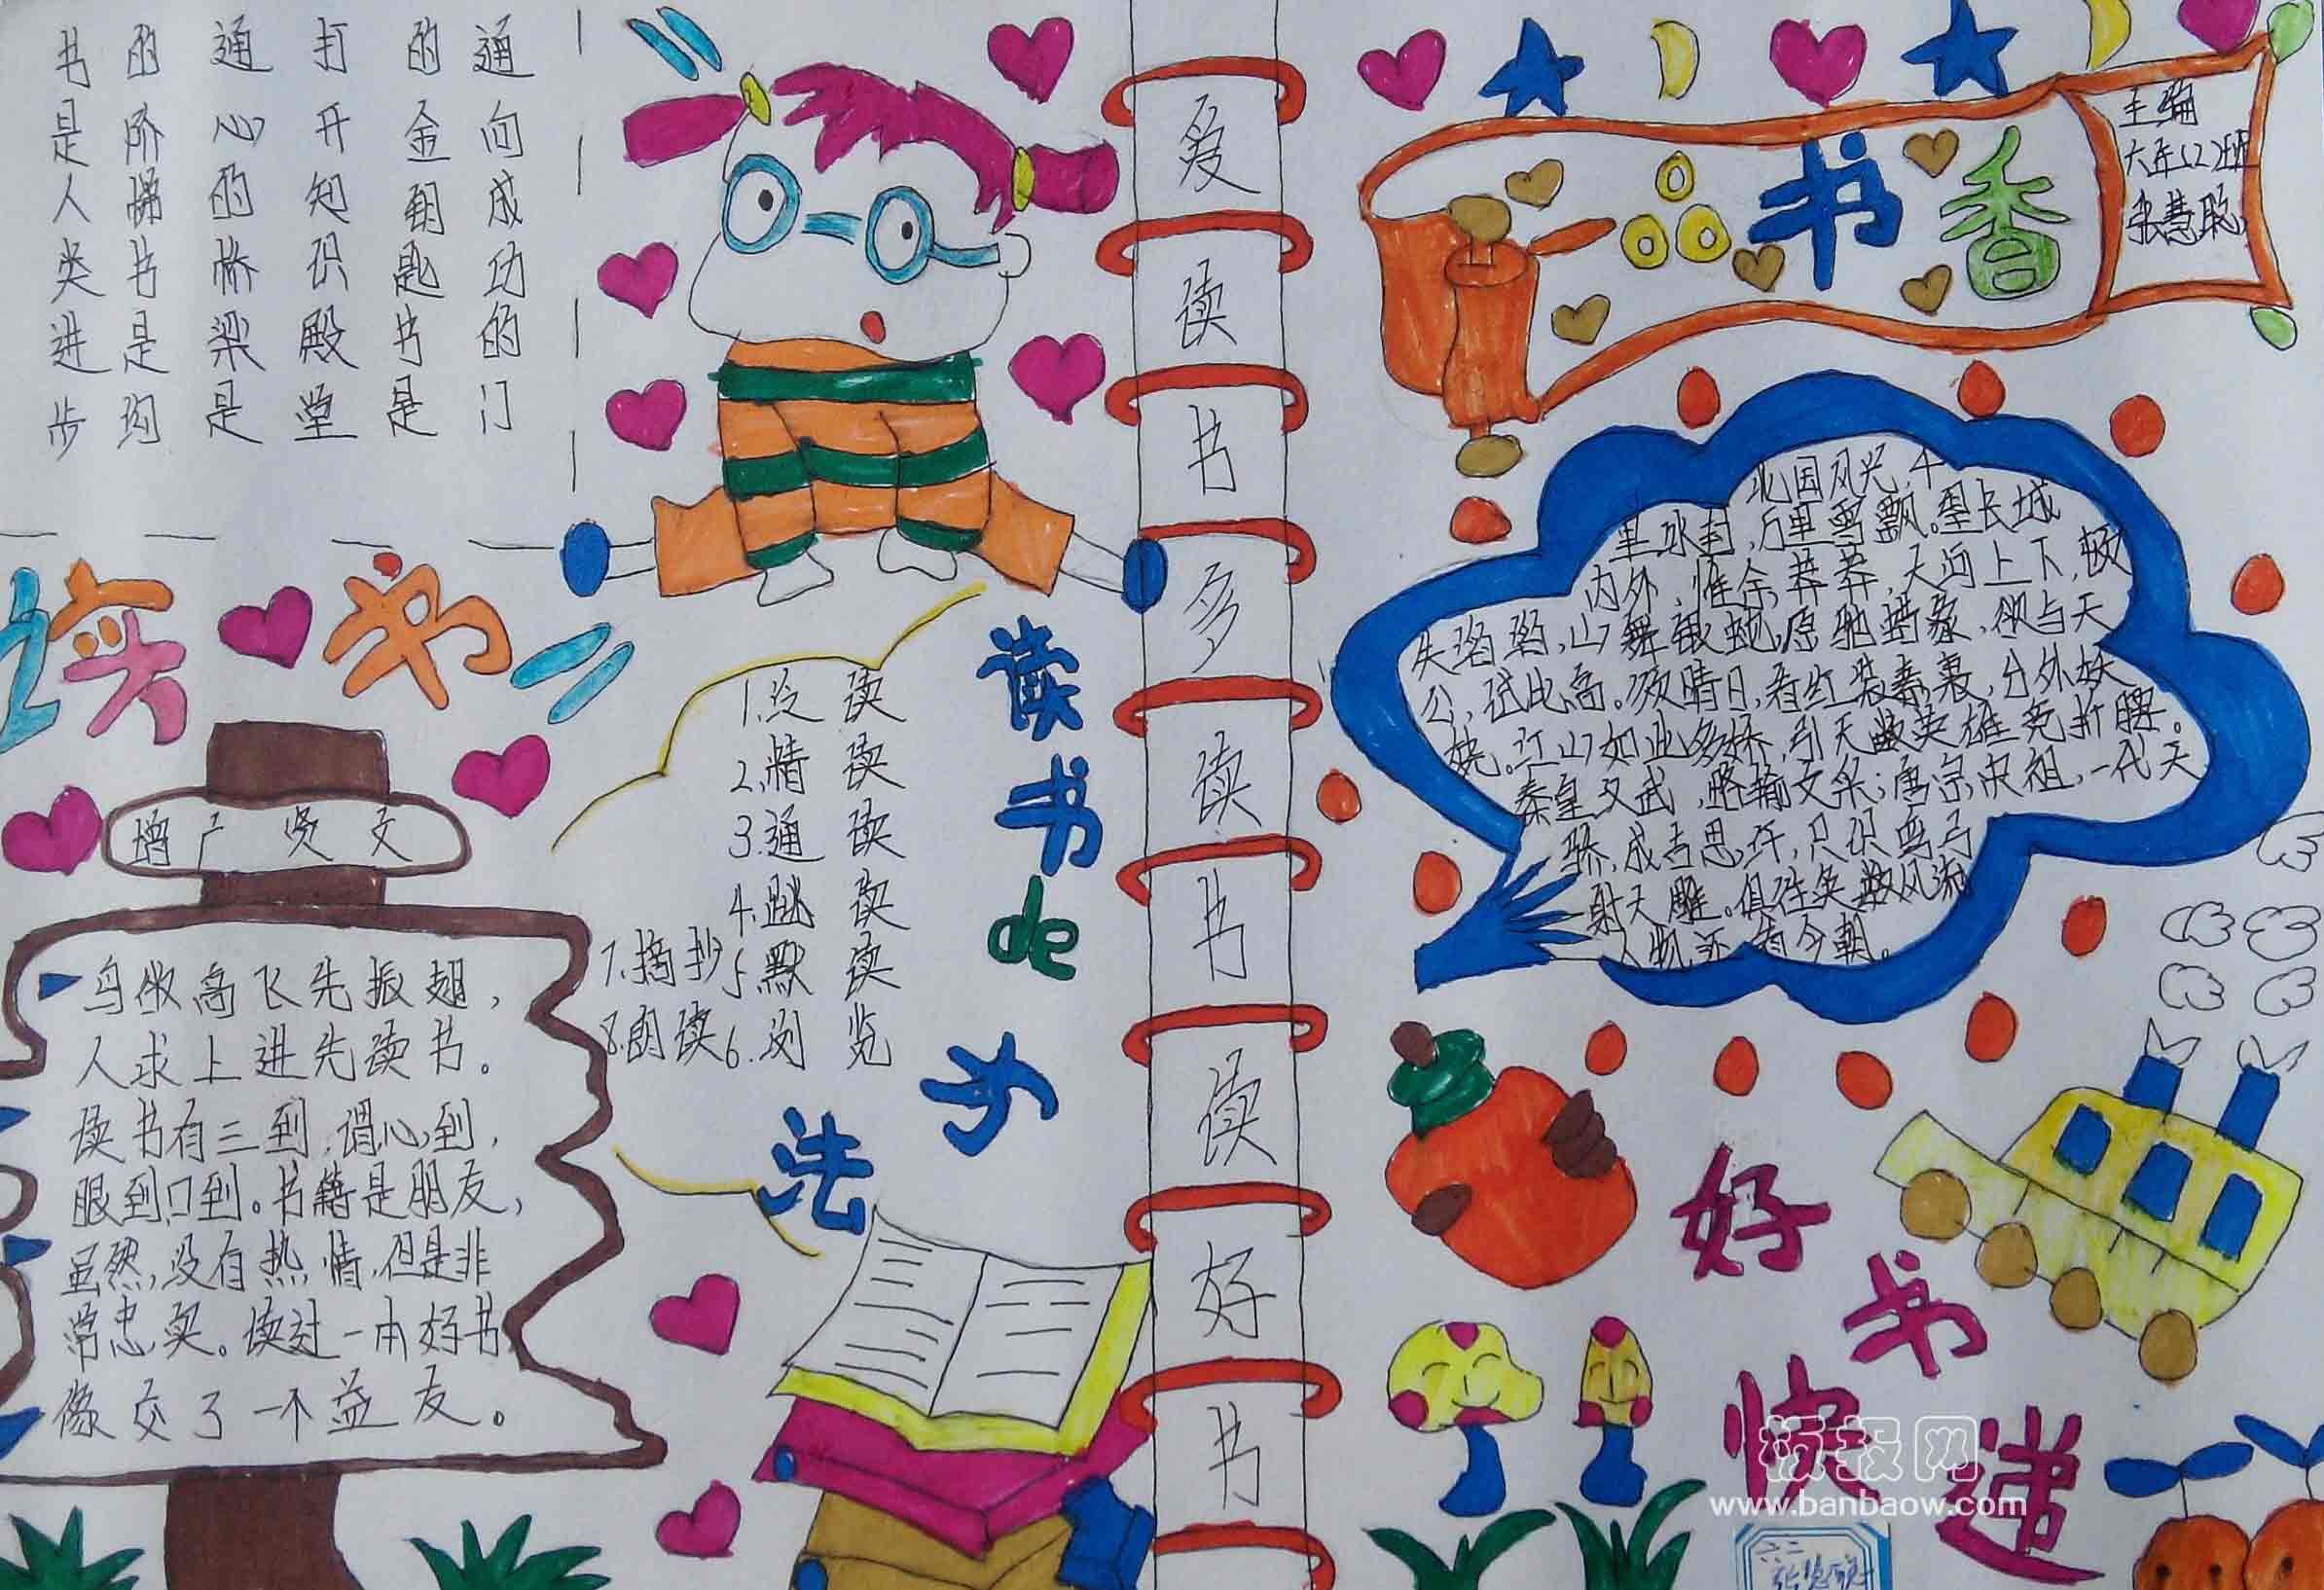 书是人类进步
的阶梯书是沟
通心的桥梁是
打开知识殿堂
的金钥匙书是
通向成功的门
读书
增广贤文
鸟欲高飞先振翅,
人求上进先读书。
读书有三到,谓心到,
眼到,口到。书籍是朋友,
虽然,没有热情,但是非
常忠实。读过一本好书
像交了一个益友。
读书de方法
1.泛读
2.精读
3.通读
4.跳读
5.默读
6.浏览
7.摘抄
8.朗读
爱读书多读书读好书
品书香
主编
六年(2)班
张慧聪
北国风光,千
里冰封,万里雪飘。望长城
内外,惟余莽莽,大河上下,顿
失滔滔,山舞银蛇,原驰蜡象,欲与天
公,试比高。须晴日,看红装素裹,分外妖
娆。江山如此多娇,引无数英雄竞折腰。
秦皇汉武,略输文采;唐宗宋祖,一代天
骄,成吉思汗,只识弯弓
射大雕。俱往矣,数风流
人物,还看今朝。
好书快递
板报网
www.banbaow.com